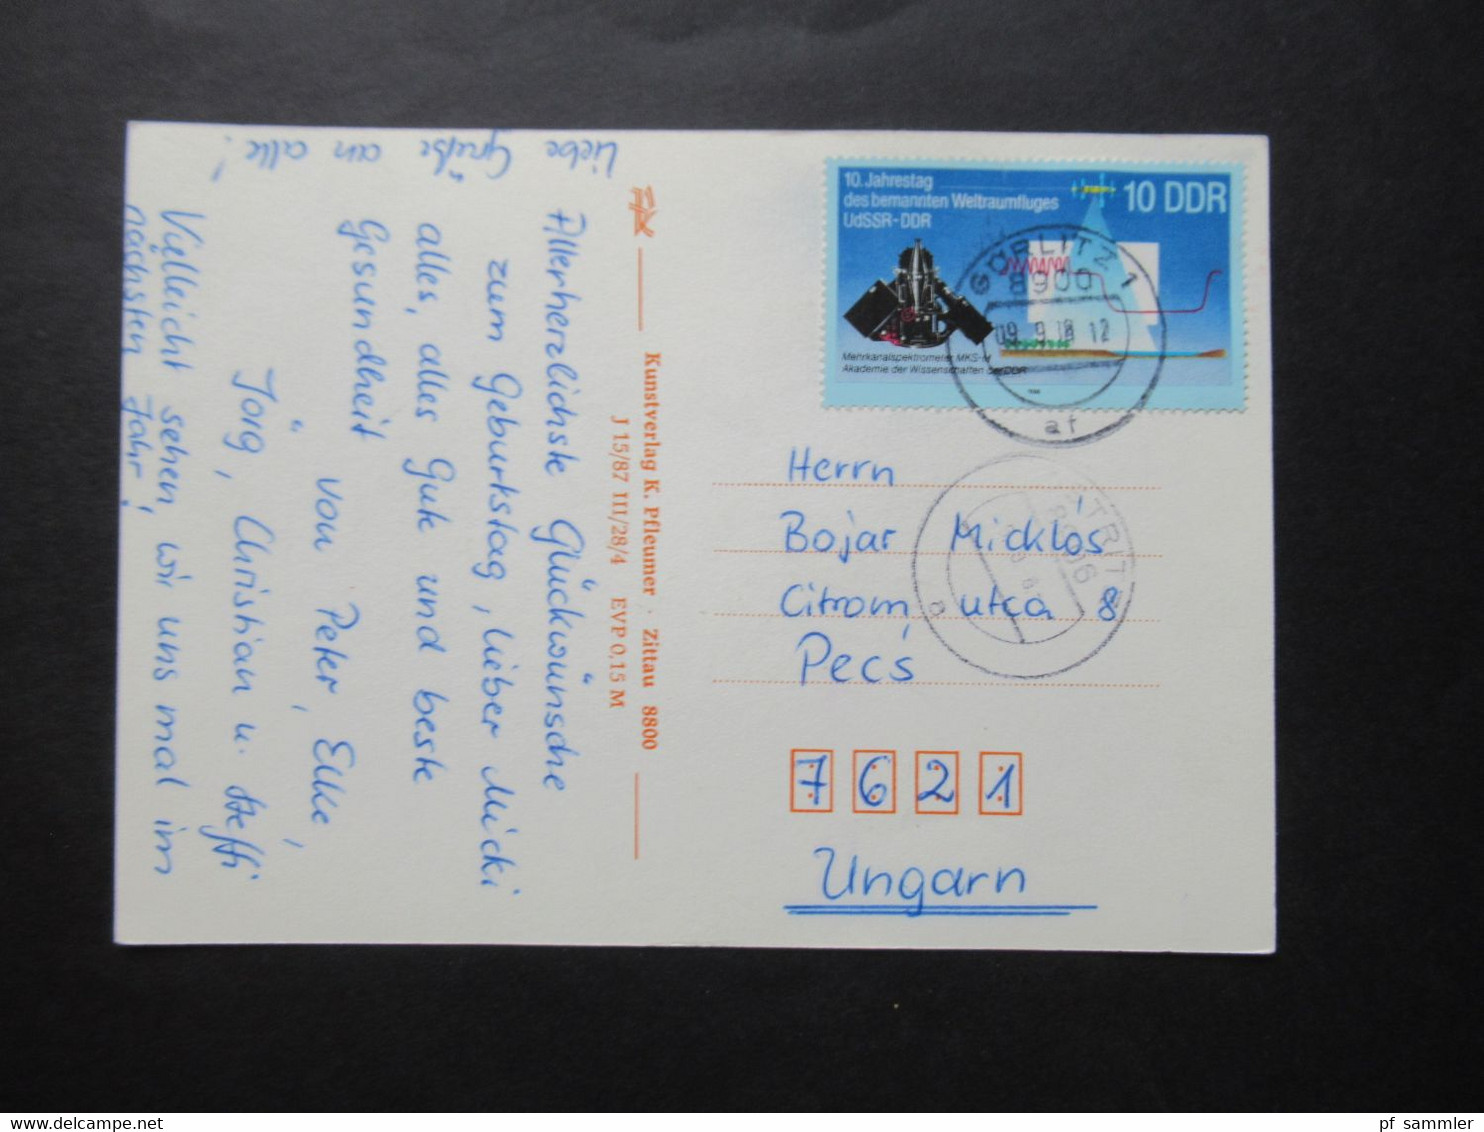 Allerherzlichste Glückwünsche
zum Geburtstag, lieber Micki
alles, alles Gute und beste
Gesundheit
von Peter, Elke,
Jörg, Christian u. Steffi
Vielleicht sehen wir uns mal im
nächsten Jahr!
Liebe Grüße an alle!
Kunstverlag K. Pfleumer · Zittau 8800
J 15/87 III/28/4 EVP 0,15 M
10. Jahrestag
des bemannten Weltraumfluges
UdSSR-DDR
10 DDR
Mehrkanalspektrometer MKS-M
Akademie der Wissenschaften der DDR
GÖRLITZ 1
8900
af
8906
Herrn
Bojar Micklós
Citrom utca 8
Pecś
7621
Ungarn
www.delcampe.net
pf_sammler